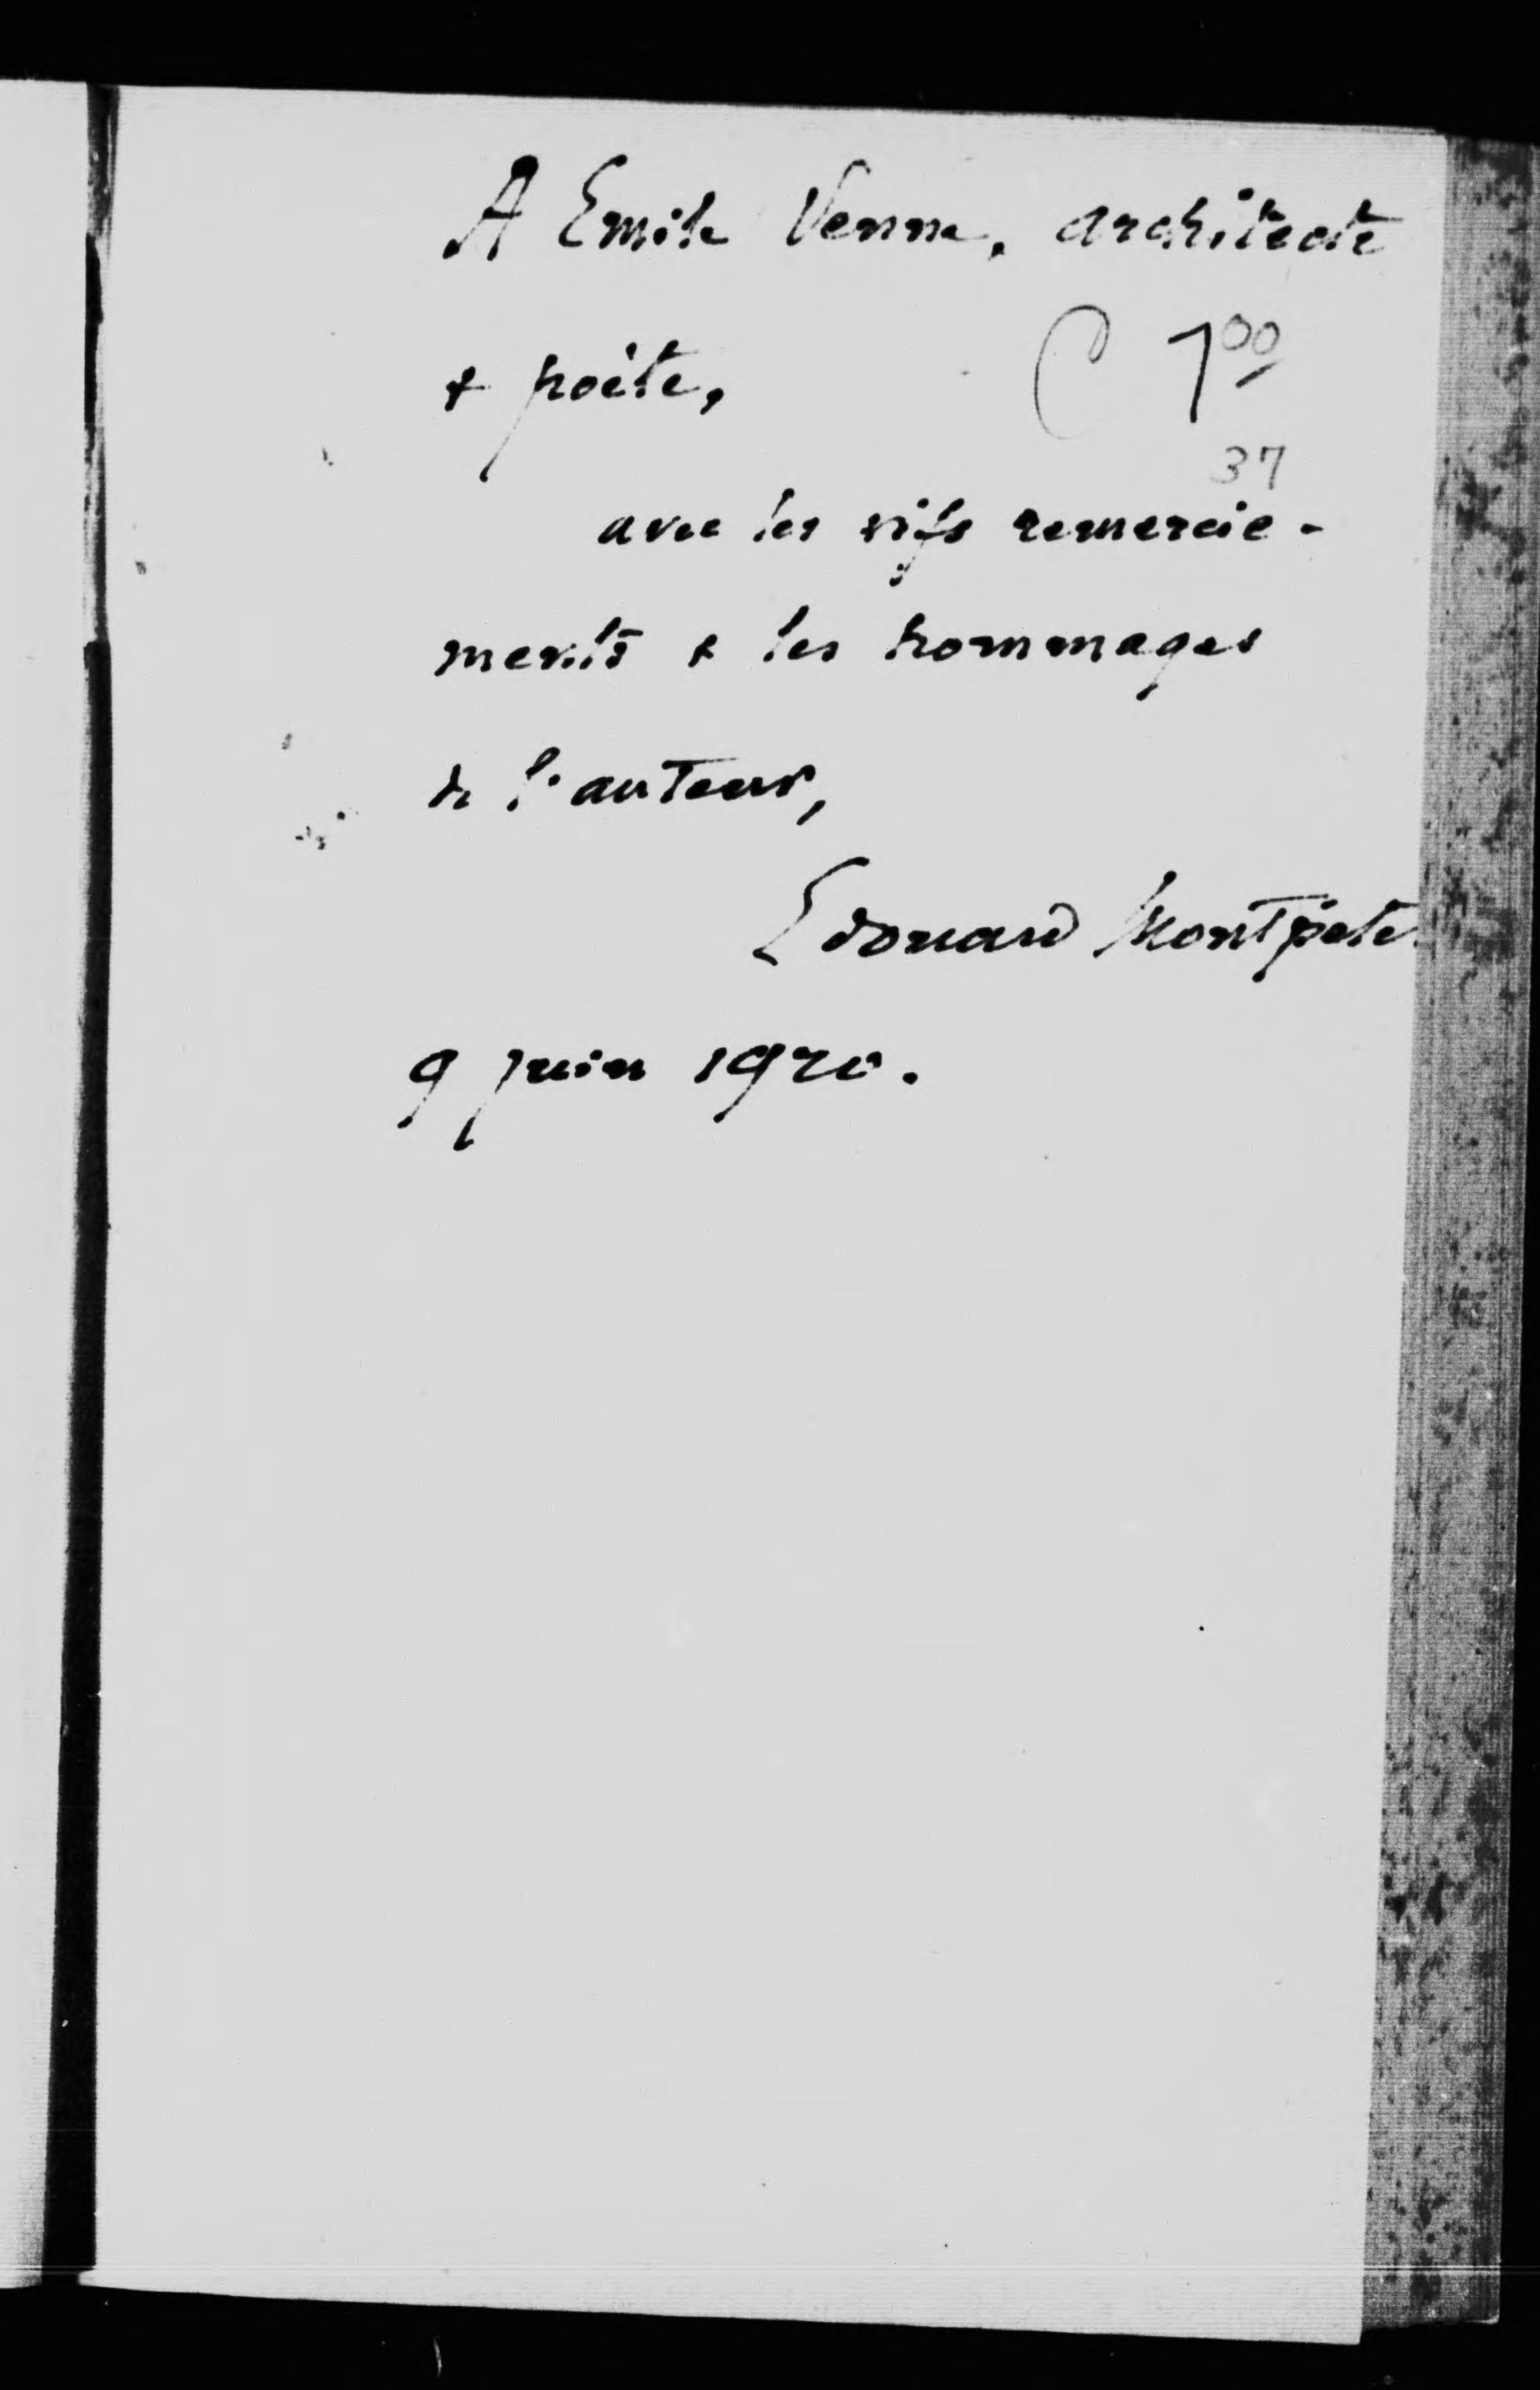 A Emile Venne, architecte
& poète,
C 7 00
37
avec les vifs remercie-
ments & les hommages
de l'auteur,
Edouard Montpetit
9 juin 1920.